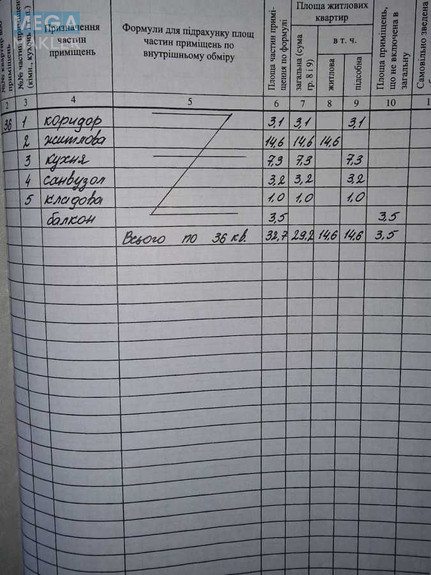 MEGA
MAKLER
№№ частин приміщень (кімн., кухонь і т.п.)
Призначення частин приміщень
Формули для підрахунку площ частин приміщень по внутрішньому обміру
Площа частин приміщення по формулі
Площа житлових квартир
загальна (сума гр. 8 і 9)
в т. ч.
житлова
підсобна
Площа приміщень, що не включена в загальну
Самовільно зведена
2 3 4 5 6 7 8 9 10
36 1 коридор 3,1 3,1 3,1
2 житлова 14,6 14,6 14,6
3 кухня 7,3 7,3 7,3
4 санвузол 3,2 3,2 3,2
5 кладова 1,0 1,0 1,0
балкон 3,5 3,5
Всього по 36 кв. 32,7 29,2 14,6 14,6 3,5